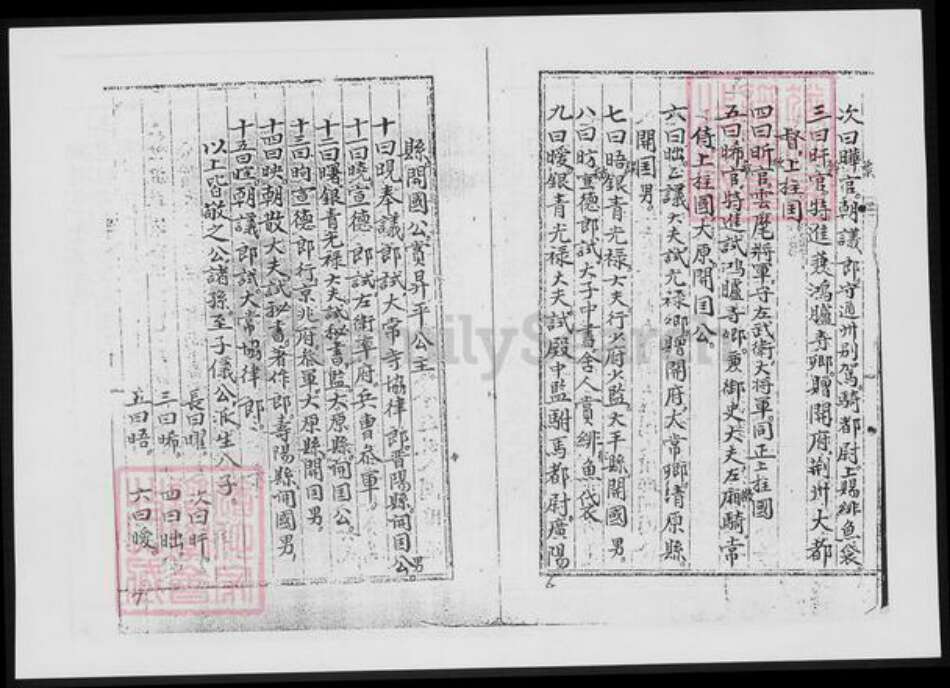 次曰曄官朝議郎守通州别駕騎都尉上賜緋魚袋
三曰旰官特進兼鴻臚寺卿贈開府荆州大都
督上柱国
四曰昕官雲麾將軍守左武衛大將軍同正上柱國
五曰晞官特進試鴻臚寺卿兼御史大夫左廂騎常
侍上柱國大原開国公
六曰昢正議大夫試光禄卿贈開府大常卿清原縣
開国男
七曰晤銀青光禄大夫行少府少監太平縣開國男
八曰昉宣德郎試大子中書舍人賞緋魚袋
九曰曖銀青光禄大夫試殿中監駙馬都尉廣陽
6
縣開國公賞昇平公主
十曰晛奉議郎試大常寺協律郎晋陽縣開国男公
十一曰曉宣德郎試左衛率府兵曹參軍
十二曰曙銀青光禄大夫試秘書監太原縣開国公
十三曰昫宣德郎行京兆府參軍大原縣開国男
十四曰映朝散大夫試秘書著作郎壽陽縣開國男
十五曰晊朝議郎試大常協律郎
以上皆敬之公諸孫至子儀公派生八子
長曰曜 次曰旰
三曰晞 四曰昢
五曰晤 六曰曖
7
FamilySearch